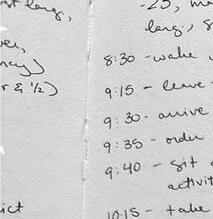 lang,
& 1/2)
ict
-25, m
lang, s
8:30 - wake
9:15 - leave
9:30 - arrive
9:35 - order
9:40 - sit
activit
10:15 - take